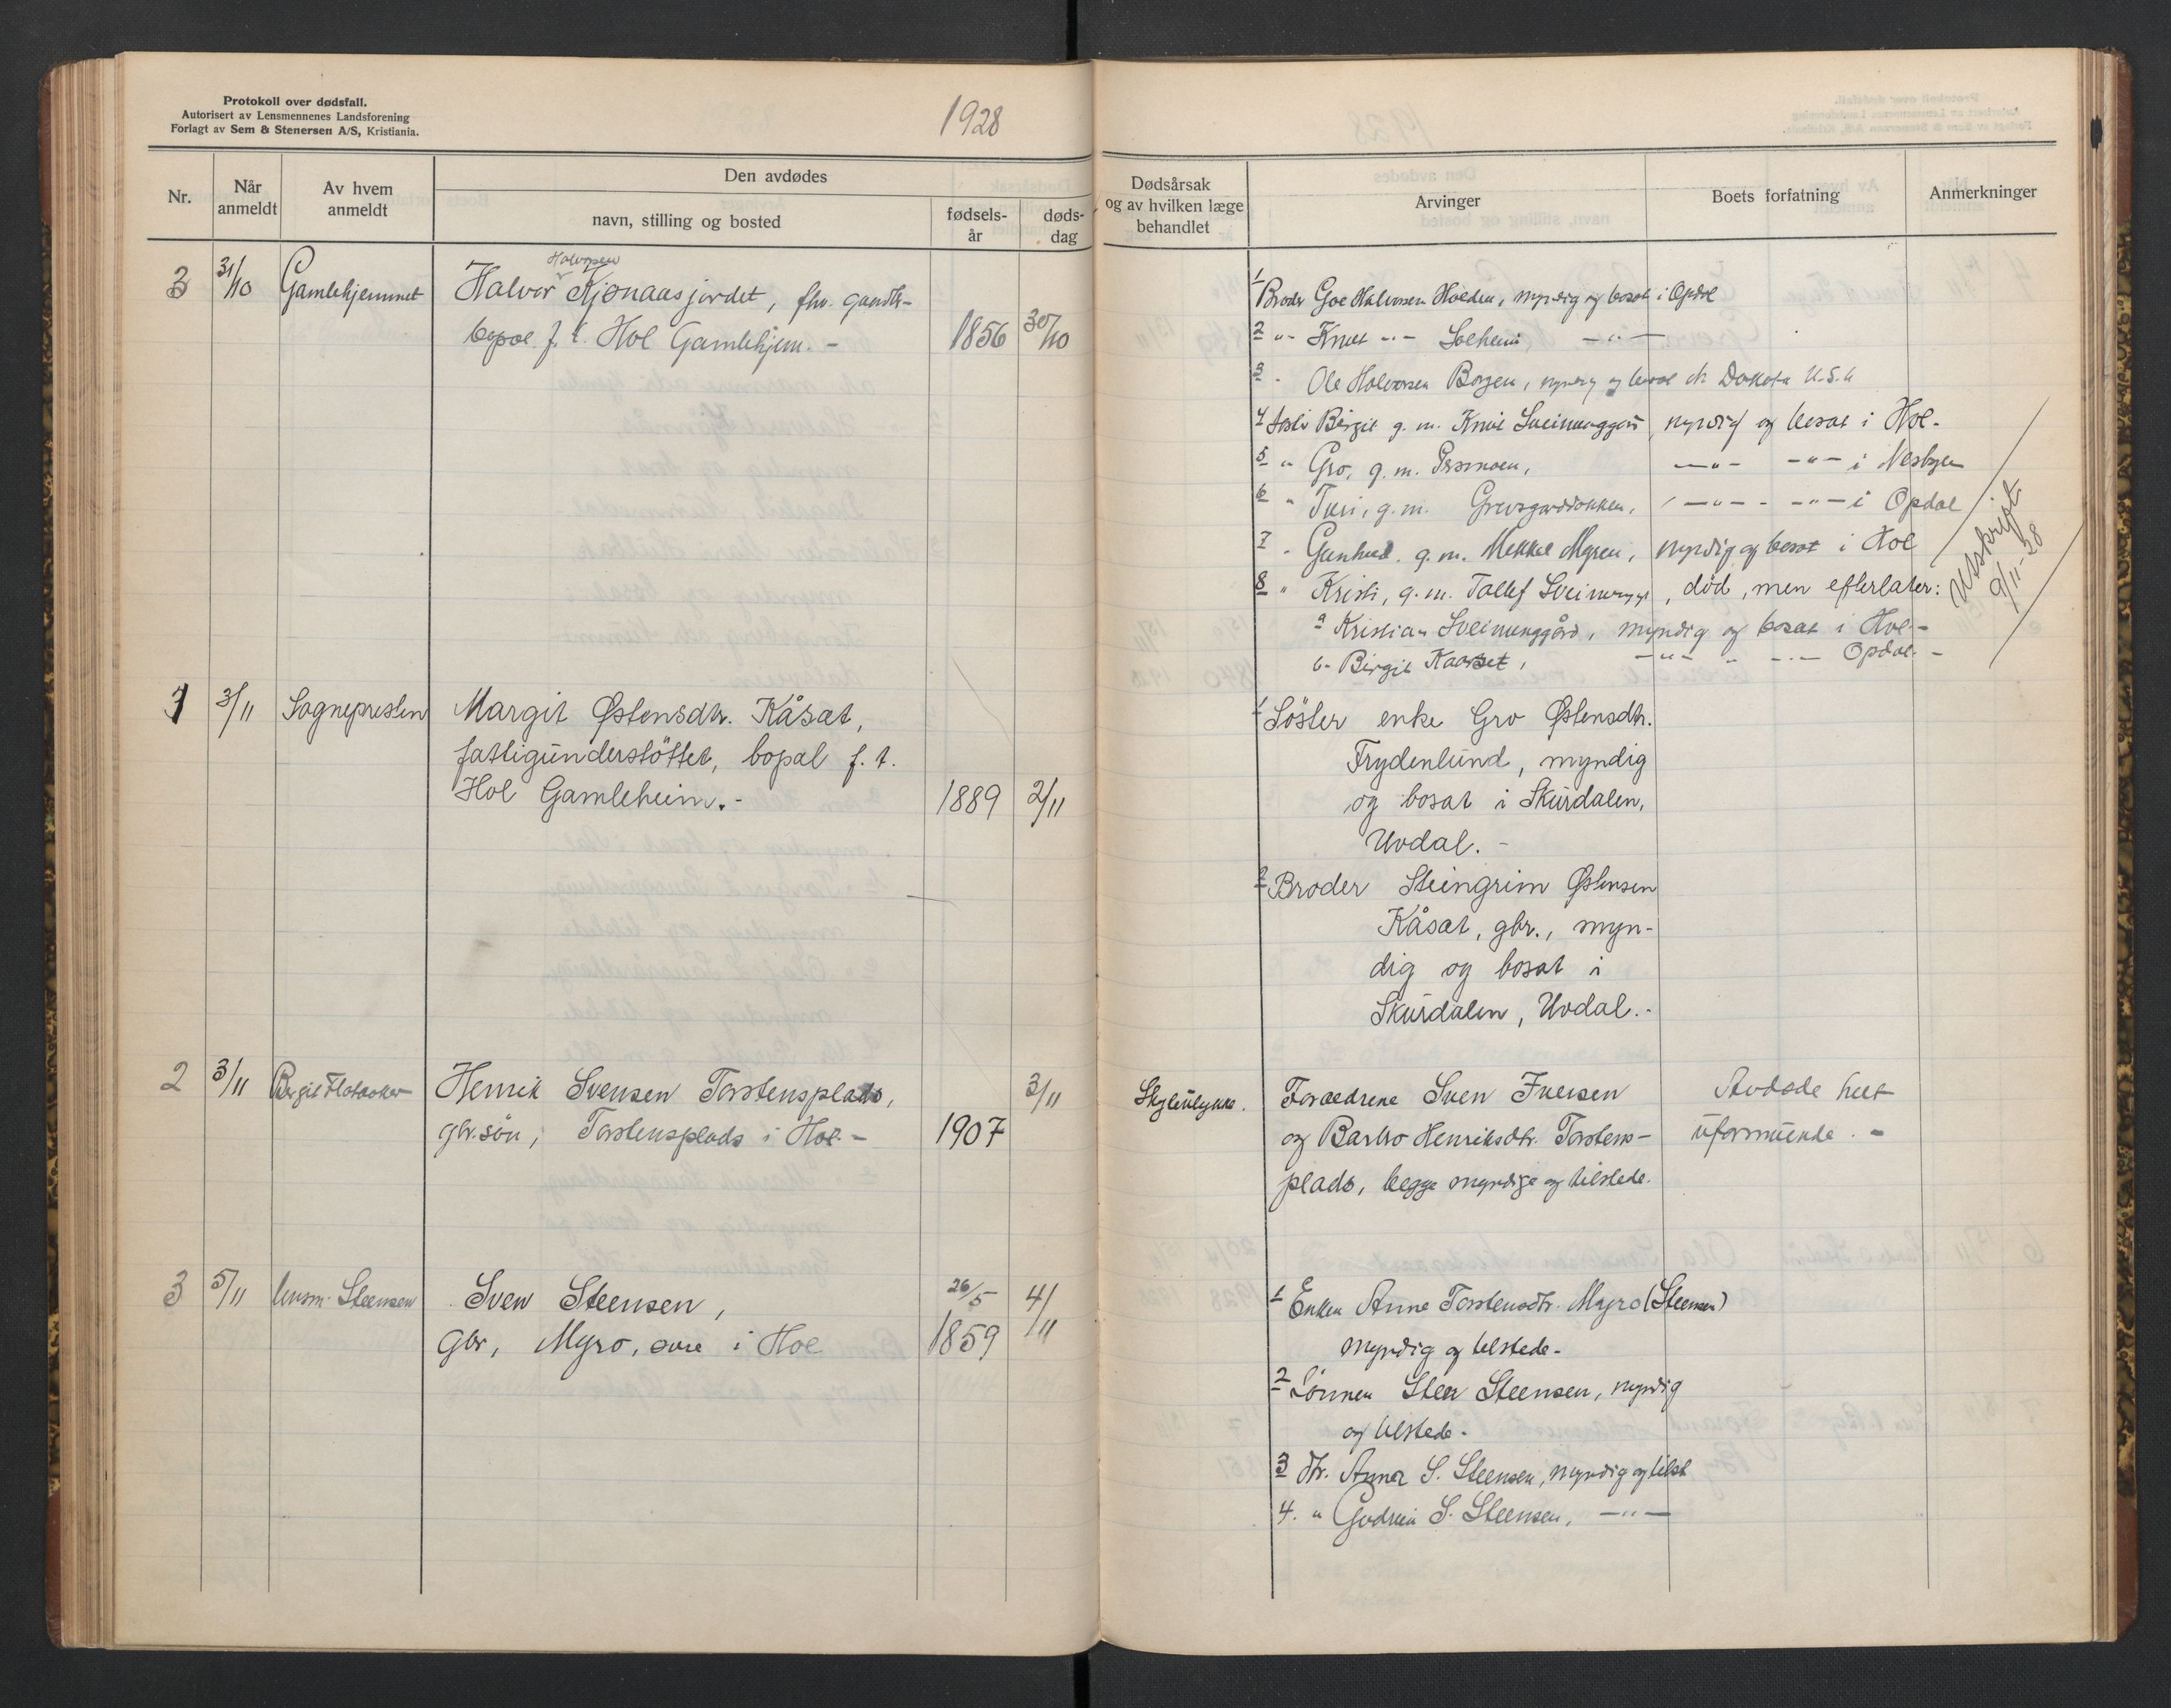 Protokoll over dødsfall.
Autorisert av Lensmennenes Landsforening
Forlagt av Sem & Stenersen A/S, Kristiania.
1928
Nr.
Når anmeldt
Av hvem anmeldt
Den avdødes
navn, stilling og bosted
fødsels-år
døds-dag
Dødsårsak og av hvilken læge behandlet
Arvinger
Boets forfatning
Anmerkninger
3 31/10 Gamlehjemmet
Halvorsen
Halvor Kjønaasjordet, fhv.
bopæl f. t. Hol Gamlehjem. - 1856 30/10
1 Broder Halvorsen myndig og bosat i Opdal
2 -"- Knut -"- Solheim, -"-
3 - Ole Halvorsen Borgen, myndig og bosat Dakota U.S.A
4 Birgit g. m. Knut Sveinunggård, myndig og bosat i Hol.
5 " Gro, g. m. -"- -"- i Nesbyen
6 " Turi, g. m. -"- -"- i Opdal
7 - Gunhild g. m. Mekkel Myren, myndig og bosat i Hol
8 " Kristi, g. m. Tollef , død, men efterlater:
a Kristian Sveinunggård, myndig og bosat i Hol -
b- Birgit Kaaset, -"- " -"- Opdal. -
Utskrift
9/11-28
1 3/11 Sognepresten
Margit Østensdtr. Kåsat,
fattigunderstöttet, bopal f. t.
Hol Gamleheim. - 1889 2/11
1 Söster enke Gro Østensdtr.
Frydenlund, myndig
og bosat i Skurdalen,
Uvdal. -
2 Broder Steingrim Østensen
Kåsat, gbr., myn-
dig og bosat i
Skurdalen, Uvdal. -
2 3/11 Birgit
Henrik Svensen Torstensplads, 3/11
gbr.sön, Torstensplads i Hol - 1907
Foraedrene Sven Iversen
og Barbro Henriksdtr. Torstens-
plads, begge myndige og tilstede.
Avdøde helt
uformuende. -
3 5/11 lensm. Steensen
Sven Steensen, 26/5 4/11
gbr, Myro, øvre i Hol 1859
1 Enken Anne Torstensdtr. Myro (Steensen)
myndig og tilstede -
2 Sönnen Sten Steensen, myndig
og tilstede -
3 dtr. Anna S. Steensen, myndig og tilst
4. " Gudrun S. Steensen, -"-